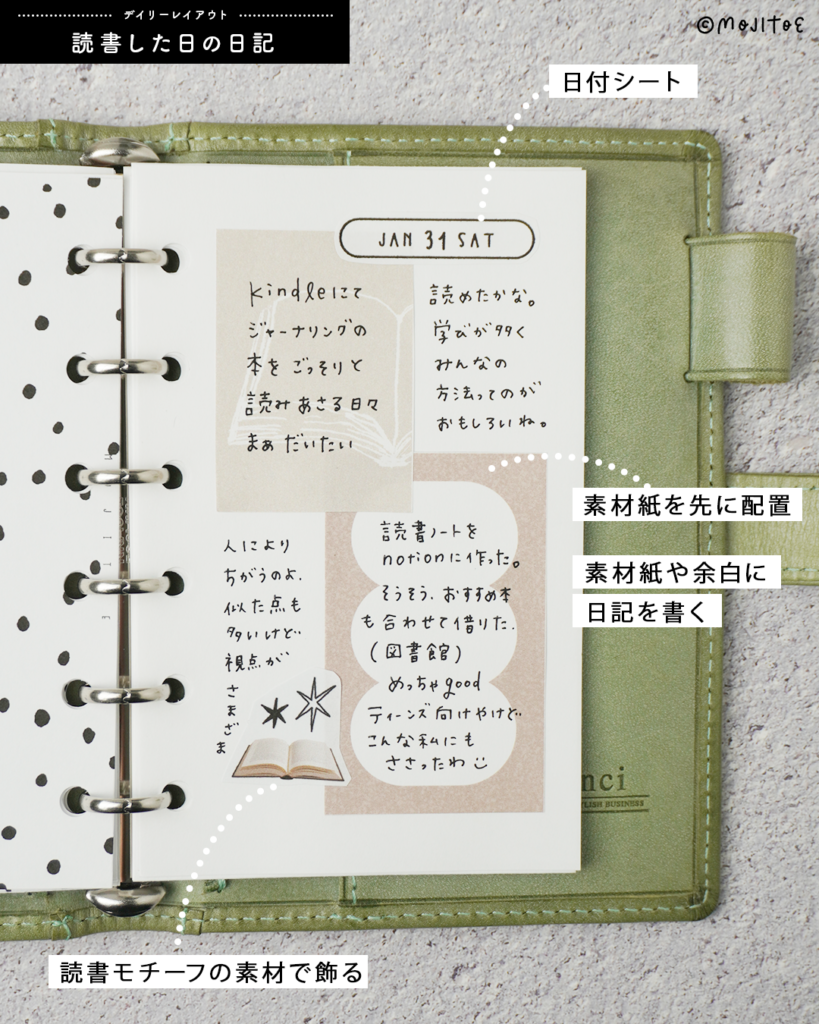 デイリーレイアウト
読書した日の日記
©MOJITOE
日付シート
JAN 31 SAT
kindleにて
ジャーナリングの
本を ごっそりと
読みあさる日々
まぁ だいたい
読めたかな。
学びが多く
みんなの
方法ってのが
おもしろいね。
素材紙を先に配置
素材紙や余白に
日記を書く
人により
ちがうのよ.
似た点も
多いけど
視点が
さまざま
読書ノートを
notionに作った。
そうそう、おすすめ本
も合わせて借りた.
(図書館)
めっちゃgood
ティーンズ向けやけど
こんな私にも
ささったわ
nci
YLISH BUSINESS
読書モチーフの素材で飾る